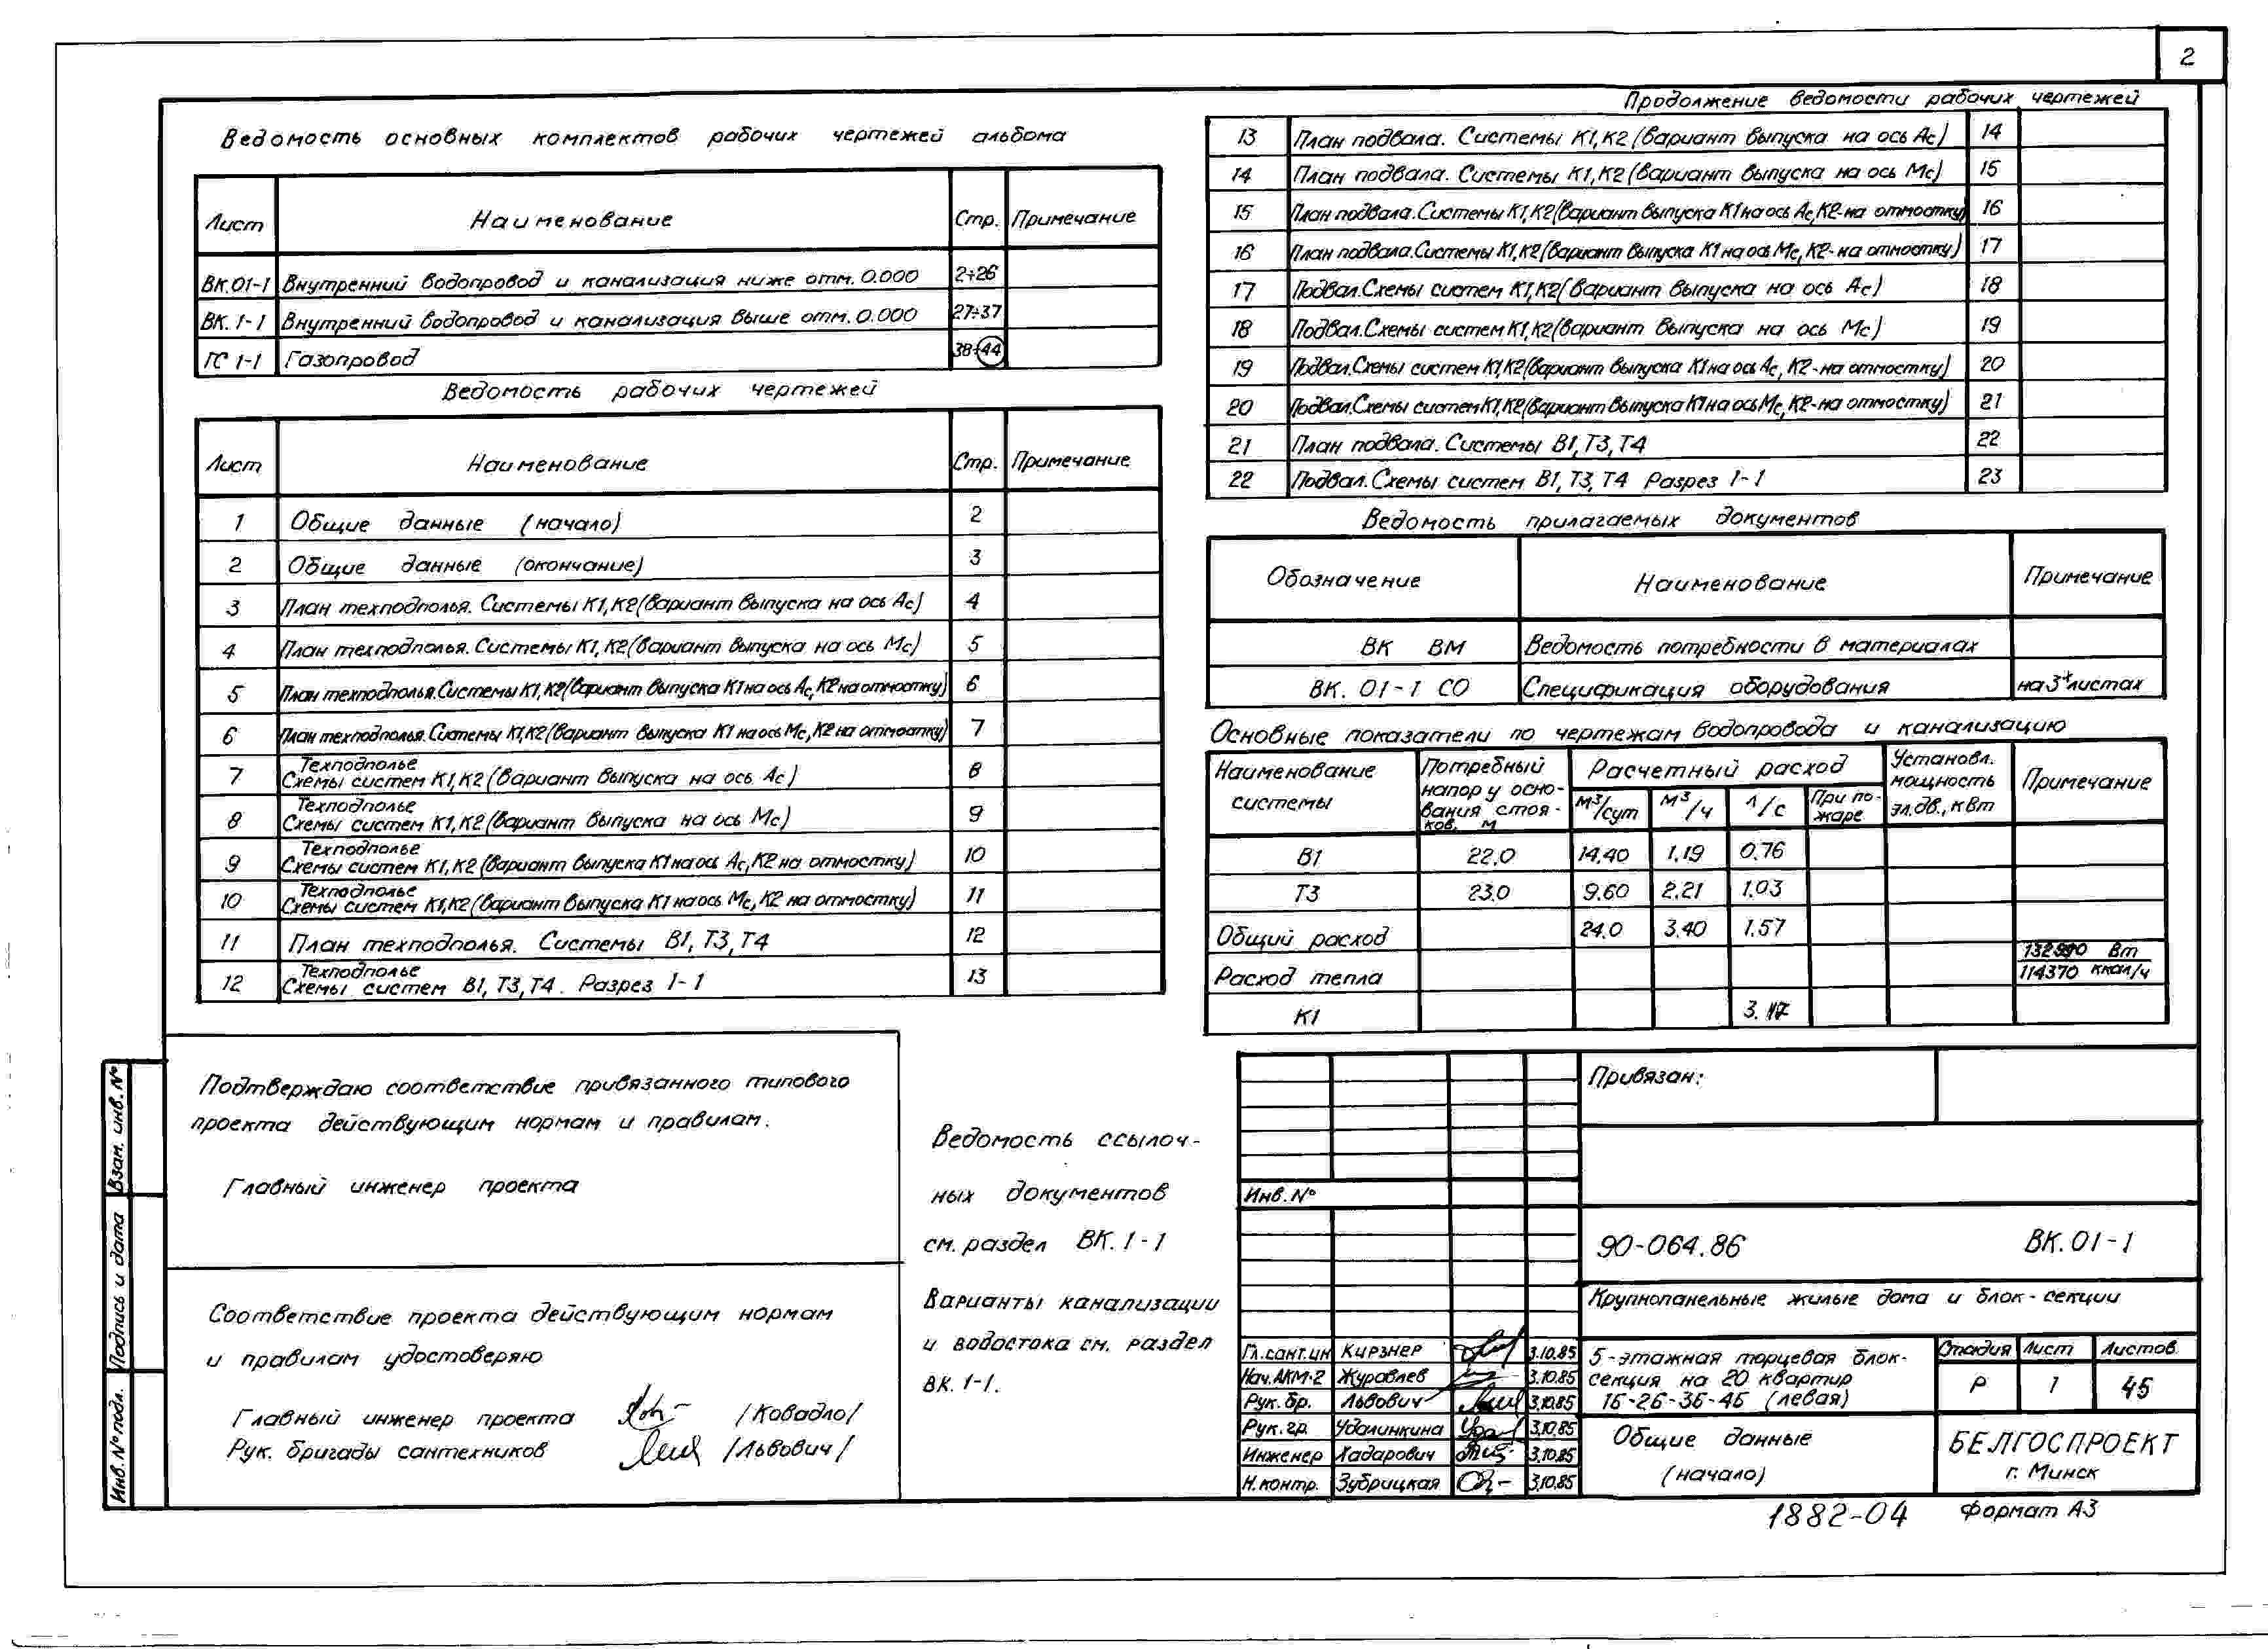 2
Ведомость основных комплектов рабочих чертежей альбома
Лист Наименование Стр. Примечание
ВК.01-1 Внутренний водопровод и канализация ниже отм. 0.000 2÷26
ВК.1-1 Внутренний водопровод и канализация выше отм. 0.000 27÷37
ГС 1-1 Газопровод 38÷44
Ведомость рабочих чертежей
Лист Наименование Стр. Примечание
1 Общие данные (начало) 2
2 Общие данные (окончание) 3
3 План техподполья. Системы К1, К2 (вариант выпуска на ось Ас) 4
4 План техподполья. Системы К1, К2 (вариант выпуска на ось Мс) 5
5 План техподполья. Системы К1, К2 (вариант выпуска К1 на ось Ас, К2 на отмостку) 6
6 План техподполья. Системы К1, К2 (вариант выпуска К1 на ось Мс, К2 на отмостку) 7
7 Техподполье
Схемы систем К1, К2 (вариант выпуска на ось Ас) 8
8 Техподполье
Схемы систем К1, К2 (вариант выпуска на ось Мс) 9
9 Техподполье
Схемы систем К1, К2 (вариант выпуска К1 на ось Ас, К2 на отмостку) 10
10 Техподполье
Схемы систем К1, К2 (вариант выпуска К1 на ось Мс, К2 на отмостку) 11
11 План техподполья. Системы В1, Т3, Т4 12
12 Техподполье
Схемы систем В1, Т3, Т4. Разрез 1-1 13
Продолжение ведомости рабочих чертежей
13 План подвала. Системы К1, К2 (вариант выпуска на ось Ас) 14
14 План подвала. Системы К1, К2 (вариант выпуска на ось Мс) 15
15 План подвала. Системы К1, К2 (вариант выпуска К1 на ось Ас, К2-на отмостку) 16
16 План подвала. Системы К1, К2 (вариант выпуска К1 на ось Мс, К2-на отмостку) 17
17 Подвал. Схемы систем К1, К2 (вариант выпуска на ось Ас) 18
18 Подвал. Схемы систем К1, К2 (вариант выпуска на ось Мс) 19
19 Подвал. Схемы систем К1, К2 (вариант выпуска К1 на ось Ас, К2-на отмостку) 20
20 Подвал. Схемы систем К1, К2 (вариант выпуска К1 на ось Мс, К2-на отмостку) 21
21 План подвала. Системы В1, Т3, Т4 22
22 Подвал. Схемы систем В1, Т3, Т4 Разрез 1-1 23
Ведомость прилагаемых документов
Обозначение Наименование Примечание
ВК ВМ Ведомость потребности в материалах
ВК. 01-1 СО Спецификация оборудования на 3х листах
Основные показатели по чертежам водопровода и канализацию
Наименование системы Потребный напор у основания стояков, м Расчетный расход Установл. мощность эл.дв., кВт Примечание
м³/сут м³/ч л/с При пожаре
В1 22.0 14.40 1.19 0.76
Т3 23.0 9.60 2.21 1.03
Общий расход 24.0 3.40 1.57
Расход тепла Вт
114370 ккал/ч
К1
Подтверждаю соответствие привязанного типового
проекта действующим нормам и правилам.
Главный инженер проекта
Соответствие проекта действующим нормам
и правилам удостоверяю
Главный инженер проекта /Ковадло/
Рук. бригады сантехников /Львович/
Ведомость ссылоч-
ных документов
см. раздел ВК. 1-1
Варианты канализации
и водостока см. раздел
ВК. 1-1.
Взам. инв. №
Подпись и дата
Инв. № подл.
Привязан:
Инв. №
90-064.86 ВК. 01-1
Крупнопанельные жилые дома и блок-секции
Гл.сант.ин Кирзнер 3.10.85
Нач.АКМ-2 Журавлев 3.10.85
Рук. бр. Львович 3.10.85
Рук. гр. Удалинкина 3.10.85
Инженер Хадарович 3.10.85
Н.контр. Зубрицкая 3.10.85
5-этажная торцевая блок-
секция на 20 квартир
1Б-2Б-3Б-4Б (левая)
Стадия Лист Листов
Р 1 45
Общие данные
(начало)
БЕЛГОСПРОЕКТ
г. Минск
1882-04 Формат А3